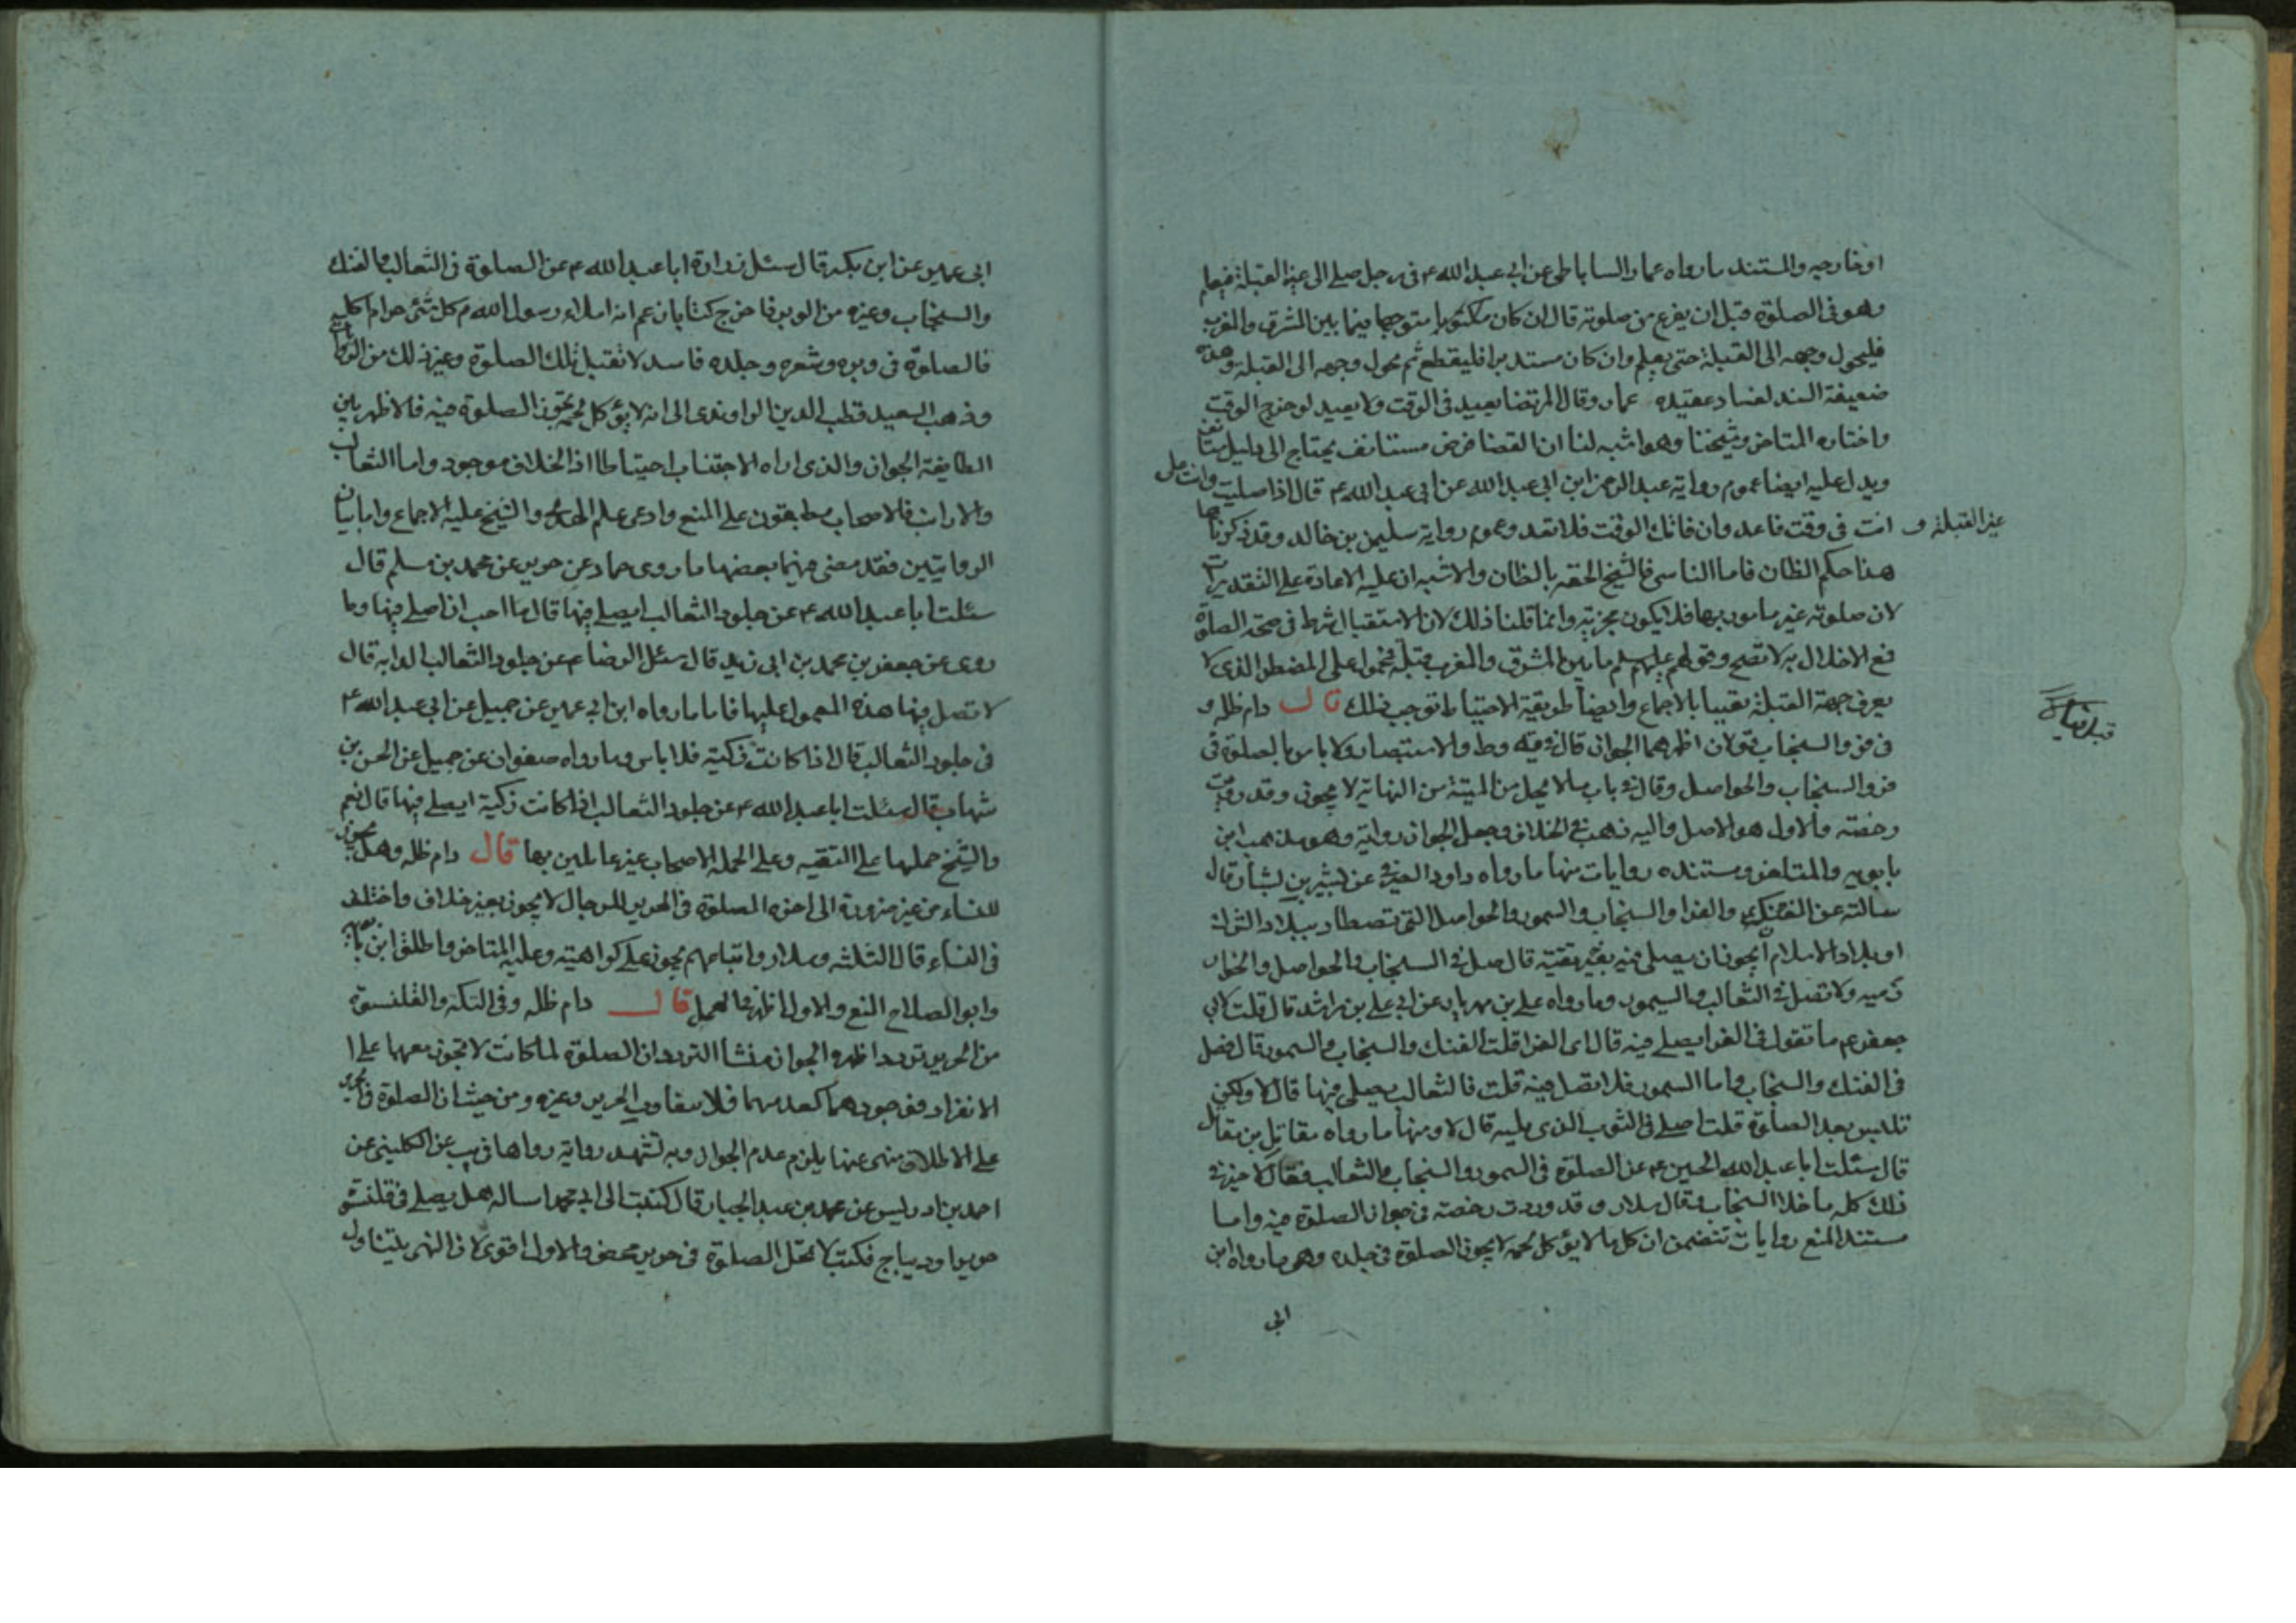 او خارجيه والمستند ما رواه عمار الساباطى عن ابى عبد الله ع فى رجل صلى الى غير القبلة فيعلم
وهو فى الصلوة قبل ان يفرغ من صلوته قال ان كان متوجها فيما بين المشرق والمغرب
فليحول وجهه الى القبلة حتى يعلم وان كان مستدبرا فليقطع ثم يحول وجهه الى القبلة وهذه
ضعيفة السند لفساد عقيدة عمار وقال المرتضا يعيد فى الوقت ولا يعيد لو خرج الوقت
واختاره المتاخر وشيخنا وهو اشبه لنا ان القضا فرض مستانف يحتاج الى دليل
ويدل عليه ايضا عموم رواية عبد الرحمن ابن ابى عبد الله عن ابى عبد الله ع قال اذا صليت وانت على
غير القبلة و
انت فى وقت فاعد وان فاتك الوقت فلا تعد وعموم رواية سليمن بن خالد وقد ذكرناها
هذا حكم الظان فاما الناسى فالشيخ الحقه بالظان والاشبه ان عليه الاعادة على التقديرات
لان صلوته غير مامور بها فلا يكون مجزية وانما قلنا ذلك لان الاستقبال شرط فى صحة الصلوة
فمع الاخلال به لا تصح وقولهم عليهم سلم ما بين المشرق والمغرب قبلة فمحمول على المضطر الذى لا
يعرف جهة القبلة يقينا بالاجماع وايضا طريقة الاحتياط توجب ذلك قال دام ظله و
فى فرو السنجاب قولان اظهرهما الجواز قال فى يه وط والاستبصار ولا باس بالصلوة فى
فرو السنجاب والحواصل وقال فى باب ما لا يحل من الميتة من النهاية لا يجوز وقد رويت
رخصة والاول هو الاصل واليه ذهب فى الخلاف وجعل الجواز رواية وهو مذهب ابن
بابويه والمتاخر ومستنده روايات منها ما رواه داود الصرمى عن بشير بن بشار قال
سالته عن الفنك والفرا والسنجاب والسمور والحواصل التى تصطاد ببلاد الشرك
او بلاد الاسلام ايجوز ان يصلى فيه بغير تقية قال صل فى السنجاب والحواصل والخوارز
زميه ولا تصل فى الثعالب والسمور وما رواه على بن مهزيار عن ابى على بن راشد قال قلت لابى
جعفر ع ما تقول فى الفرا يصلى فيه قال اى الفرا قلت الفنك والسنجاب والسمور قال فصل
فى الفنك والسنجاب واما السمور فلا تصل فيه قلت فالثعالب يصلى فيها قال لا ولكن
تلبس بعد الصلوة قلت اصلى فى الثوب الذى يليه قال لا ومنها ما رواه مقاتل بن مقاتل
قال سئلت ابا عبد الله الحسين ع عن الصلوة فى السمور والسنجاب والثعالب فقال لا خير فى
ذلك كله ما خلا السنجاب وقال سلار وقد وردت رخصة فى جواز الصلوة فيه واما
مستند المنع روايات تتضمن ان كل ما لا يؤكل لحمه لا يجوز الصلوة فى جلده وهى ما رواه ابن
ابى
ابى عمير عن ابن بكير قال سئل زرارة ابا عبد الله ع عن الصلوة فى الثعالب والفنك
والسنجاب وغيره من الوبر فاخرج كتابا زعم انه املاء رسول الله ص كل شئ حرام اكله
فالصلوة فى وبره وشعره وجلده فاسد لا تقبل تلك الصلوة وغير ذلك من الروايات
وذهب السعيد قطب الدين الراوندى الى انه لا يؤكل لحمه يجوز الصلوة فيه فالاظهر بين
الطايفة الجواز والذى اراه الاجتناب احتياطا اذ الخلاف موجود واما الثعالب
والارانب فالاصحاب مطبقون على المنع وادعى علم الهدى والشيخ عليه الاجماع واما بيان
الروايتين فقد مضى منهما بعضها ما روى حماد عن حريز عن محمد بن مسلم قال
سئلت ابا عبد الله ع عن جلود الثعالب ايصلى فيها قال ما احب ان اصلى فيها وما
روى عن جعفر بن محمد بن ابى زيد قال سئل الرضا ع عن جلود الثعالب الدابه قال
لا تصل فيها هذه المعمول عليها فاما ما رواه ابن ابى عمير عن جميل عن ابى عبد الله ع
فى جلود الثعالب قال اذا كانت ذكية فلا باس وما رواه صفوان عن جميل عن الحسن بن
شهاب قال سئلت ابا عبد الله ع عن جلود الثعالب اذا كانت ذكية ايصلى فيها قال نعم
والشيخ حملها على التقيه وعلى الجمله الاصحاب غير عاملين بها قال دام ظله وهل يجوز
للنساء من غير ضرورة الى اخره الصلوة فى الحرير للرجال لا يجوز بغير خلاف واختلف
فى النساء قال الثلثه وسلار واتباعهم يجوز على كراهية وعليه المتاخر واطلق ابن بابويه
وابو الصلاح المنع والاول اظهر والعمل قال دام ظله وفى التكة والقلنسوة
من الحرير تردد اظهره الجواز منشا التردد ان الصلوة لما كانت لا تجوز معهما على ا
الانفراد فوجودهما كعدمهما فلا يتفاوت الحرير وغيره ومن حيث ان الصلوة فى الحرير
على الاطلاق منهى عنها يلزم عدم الجواز وبه تشهد رواية رواها فى يب عن الكلينى عن
احمد بن ادريس عن محمد بن عبد الجبار قال كتبت الى ابى محمد اساله هل يصلى فى قلنسوة
حرير او ديباج فكتب لا تحل الصلوة فى حرير محض والاول اقوى لان النهى يتناول